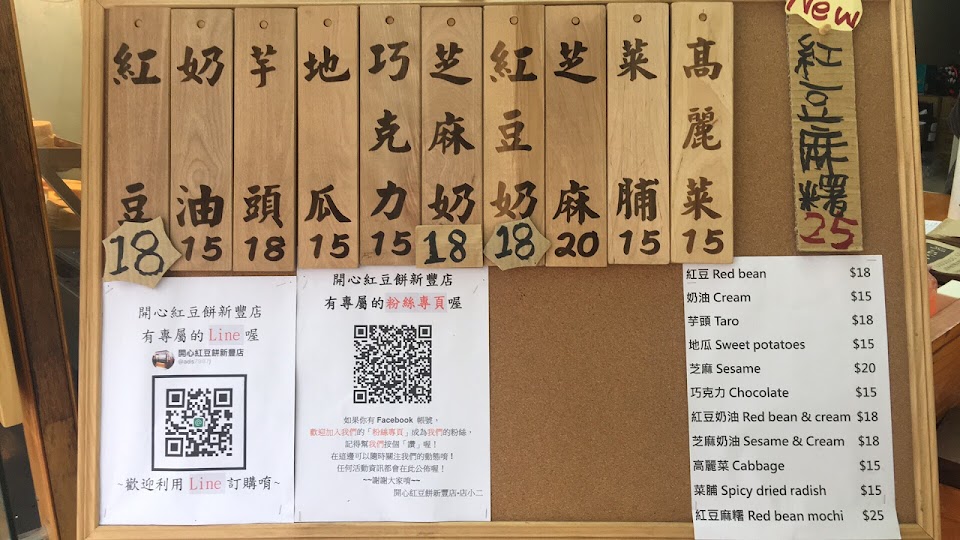 紅豆
18
奶油
15
芋頭
18
地瓜
15
巧克力
15
芝麻奶
18
紅豆奶
18
芝麻
20
菜脯
15
高麗菜
15
New
紅豆麻糬
25
開心紅豆餅新豐店
有專屬的 Line 喔
開心紅豆餅新豐店
~歡迎利用 Line 訂購唷~
開心紅豆餅新豐店
有專屬的粉絲專頁喔
如果你有 Facebook 帳號，
歡迎加入我們的「粉絲專頁」成為我們的粉絲，
記得幫我們按個「讚」喔！
在這邊可以隨時關注我們的動態唷！
任何活動資訊都會在此公佈喔！
~~謝謝大家唷~~
開心紅豆餅新豐店-店小二
紅豆 Red bean $18
奶油 Cream $15
芋頭 Taro $18
地瓜 Sweet potatoes $15
芝麻 Sesame $20
巧克力 Chocolate $15
紅豆奶油 Red bean & cream $18
芝麻奶油 Sesame & Cream $18
高麗菜 Cabbage $15
菜脯 Spicy dried radish $15
紅豆麻糬 Red bean mochi $25